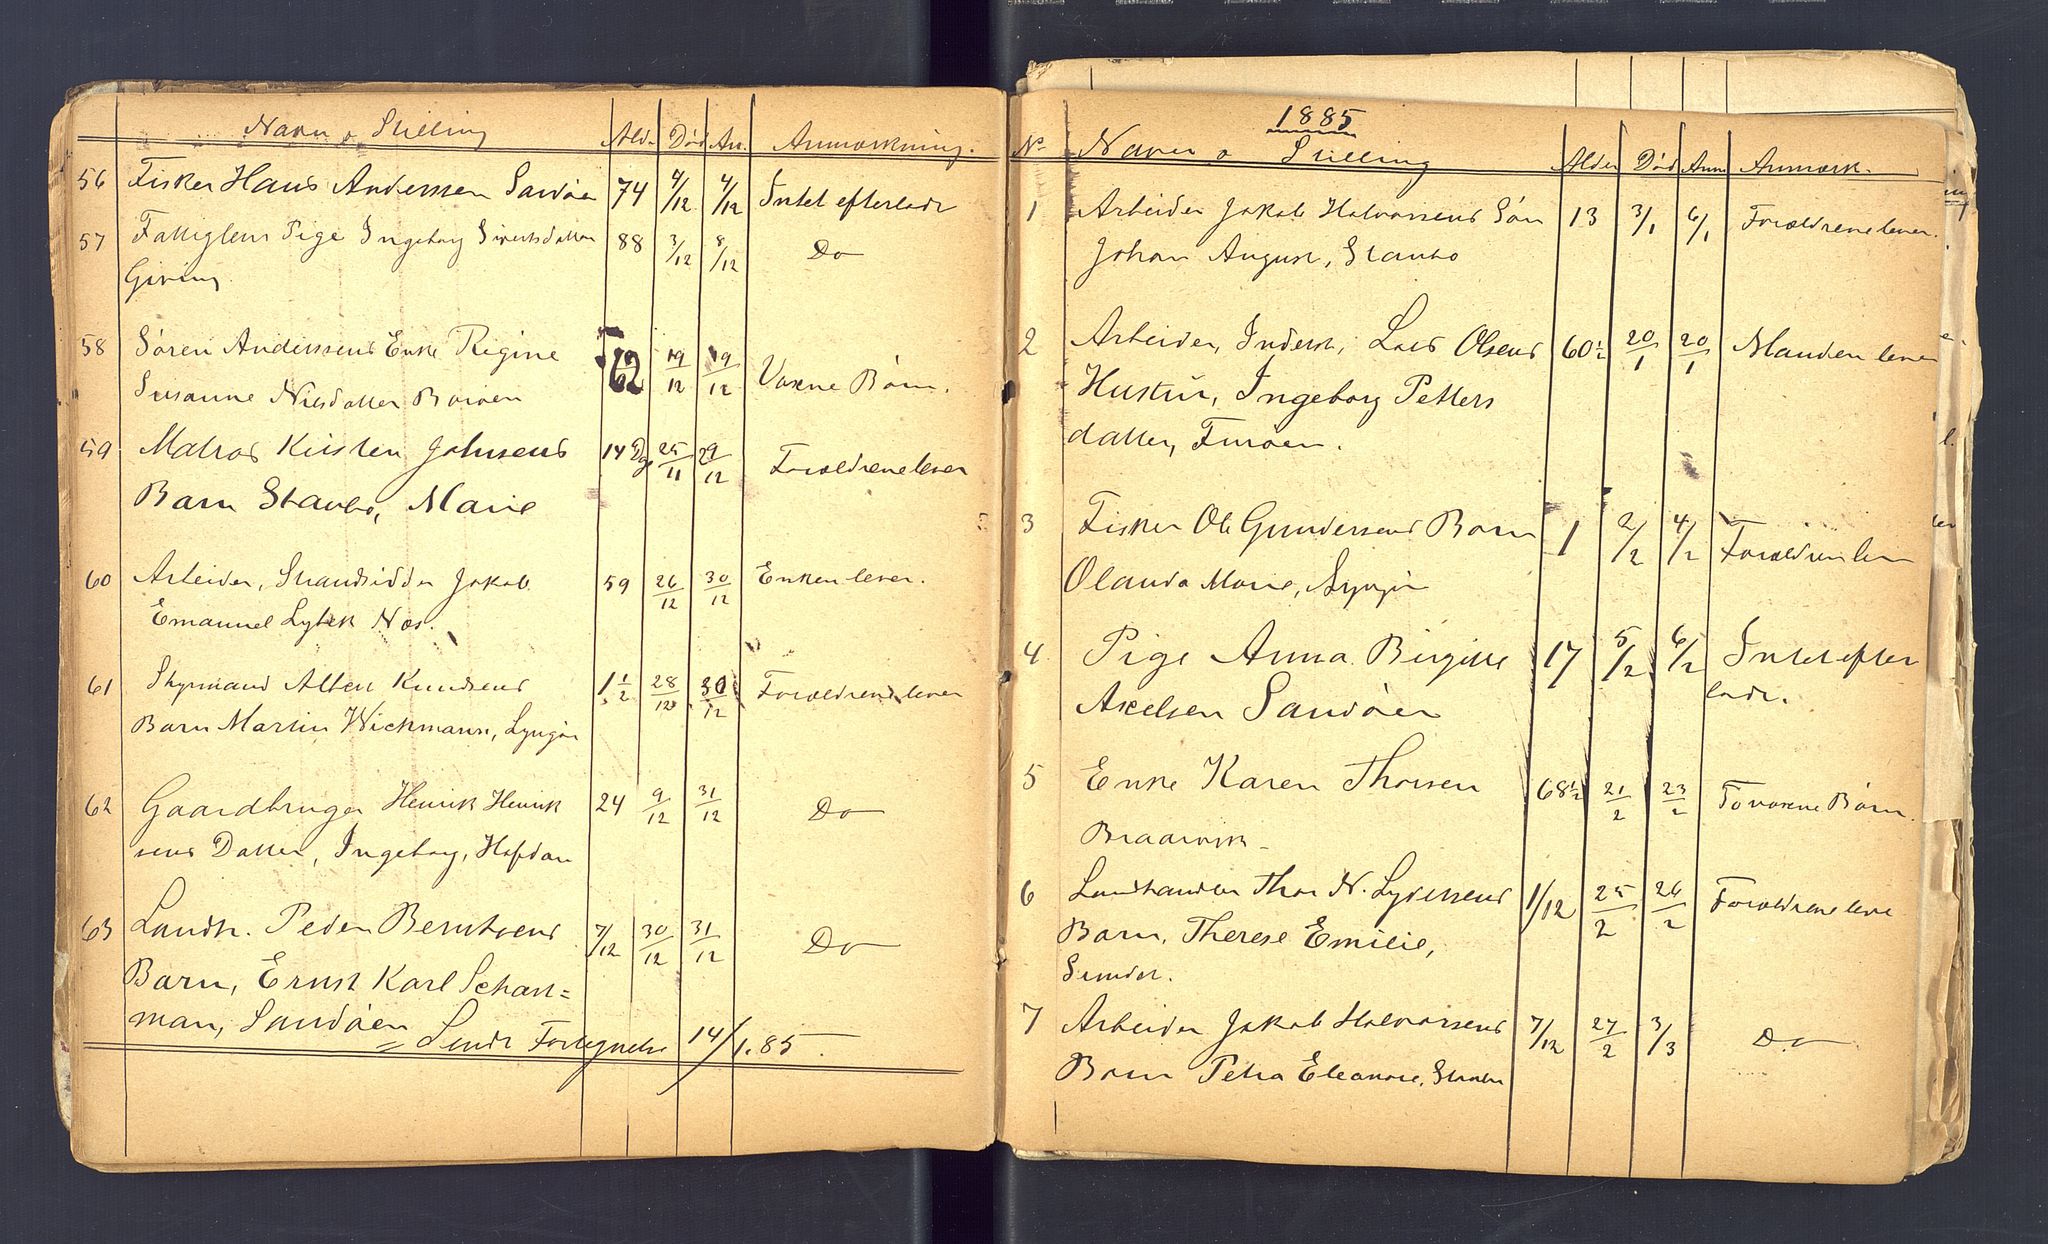 Navn o Stilling Ald. Død An. Anmærkning.
56 Fisker Hans Anderssen Sandøen 74 4/12 4/12 Intet efterladt
57 Fattiglem Pige Ingeborg Sivertsdatter 88 3/12 8/12 Do
Giving
58 Søren Anderssens Enke Regine 62 19/12 19/12 Voxne Børn.
Susanne Nilsdatter Borøen
59 Matros Kristen Johnsens 14 Dg 25/11 29/12 Forældrene lever
Barn Staubø, Marie
60 Arbeider, Strandsidder Jakob 59 26/12 30/12 Enken lever.
Emanuel Næs.
61 Styrmand Albert Knudsens 1 1/2 28/12 30/12 Forældrene lever
Barn Martin Wickmann, Lyngør
62 Gaardbruger Henrik Henrik 24 9/12 31/12 Do
sens Datter, Ingeborg, Hofdan
63 Landh. Peder Berntsens 7/12 30/12 31/12 Do
Barn, Ernst Karl Schart=
man, Sandøen
Sendt Fortegnelse 14/1.85.
1885
No Navn o Stilling Alder Død Anm Anmærk.
1 Arbeider Jakob Halvorsens Søn 13 3/1 6/1 Forældrene lever.
Johan August, Staubø
2 Arbeider, Inderst, Lars Olsens 60 1/2 20/1 20/1 Manden lever
Hustru, Ingeborg Petters
datter, Furøen.
3 Fisker Ole Gundersens Barn 1 2/2 4/2 Forældren lever
Olanda Marie, Lyngør
4 Pige Anna Birgitte 17 5/2 6/2 Intet efter
Axelsen Sandøen ladt.
5 Enke Karen Thorsen 68 1/2 21/2 23/2 To voxne Børn.
Braarvik
6 Landhandler Thor N. Lydersens 1/12 25/2 26/2 Forældrene leve
Barn, Therese Emilie,
7 Arbeider Jakob Halvorsens 7/12 27/2 3/3 Do
Barn Petra Eleanore, Staubø